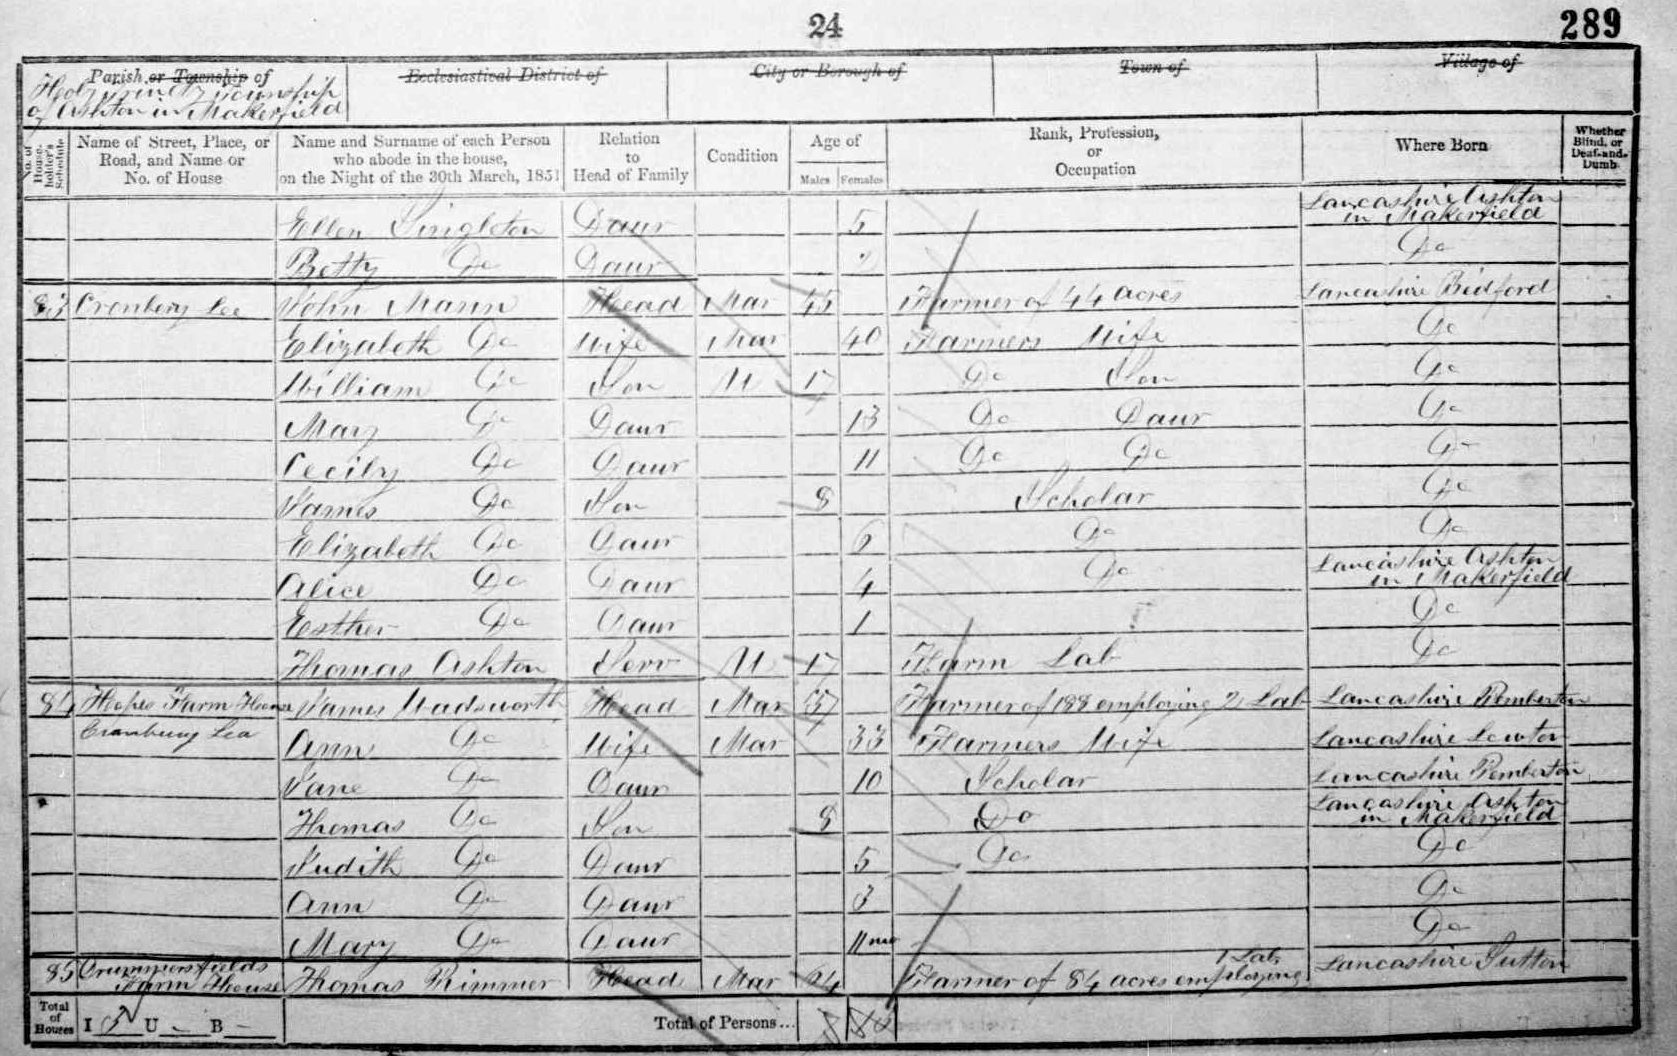 24
289
Parish or Township of
Ecclesiastical District of
City or Borough of
Town of
Village of
Holy Trinity Township
of Ashton in Makerfield
No. of House-holder's Schedule
Name of Street, Place, or Road, and Name or No. of House
Name and Surname of each Person who abode in the house, on the Night of the 30th March, 1851
Relation to Head of Family
Condition
Age of
Males Females
Rank, Profession, or Occupation
Where Born
Whether Blind, or Deaf-and-Dumb
Ellen Singleton Daur 5 Lancashire Ashton in Makerfield
Betty Do Daur 2 Do
83 Cronbery Lee John Mann Head Mar 45 Farmer of 44 Acres Lancashire Bedford
Elizabeth Do Wife Mar 40 Farmers Wife Do
William Do Son U 17 Do Son Do
Mary Do Daur 13 Do Daur Do
Cecily Do Daur 11 Do Do Do
James Do Son 8 Scholar Do
Elizabeth Do Daur 6 Do Do
Alice Do Daur 4 Do Lancashire Ashton in Makerfield
Esther Do Daur 1 Do
Thomas Ashton Serv U 17 Farm Lab Do
84 Farm House James Wadsworth Head Mar 37 Farmer of 188 employing 2 Lab Lancashire Pemberton
Cranbury Lea Ann Do Wife Mar 33 Farmers Wife Lancashire Lowton
Jane Do Daur 10 Scholar Lancashire Pemberton
Thomas Do Son 8 Do Lancashire Ashton in Makerfield
Judith Do Daur 5 Do Do
Ann Do Daur 3 Do
Mary Do Daur 11 mo Do
85 Farm House Thomas Rimmer Head Mar Farmer of 84 acres employing 1 Lab Lancashire Sutton
Total of Houses I 3 U - B -
Total of Persons...